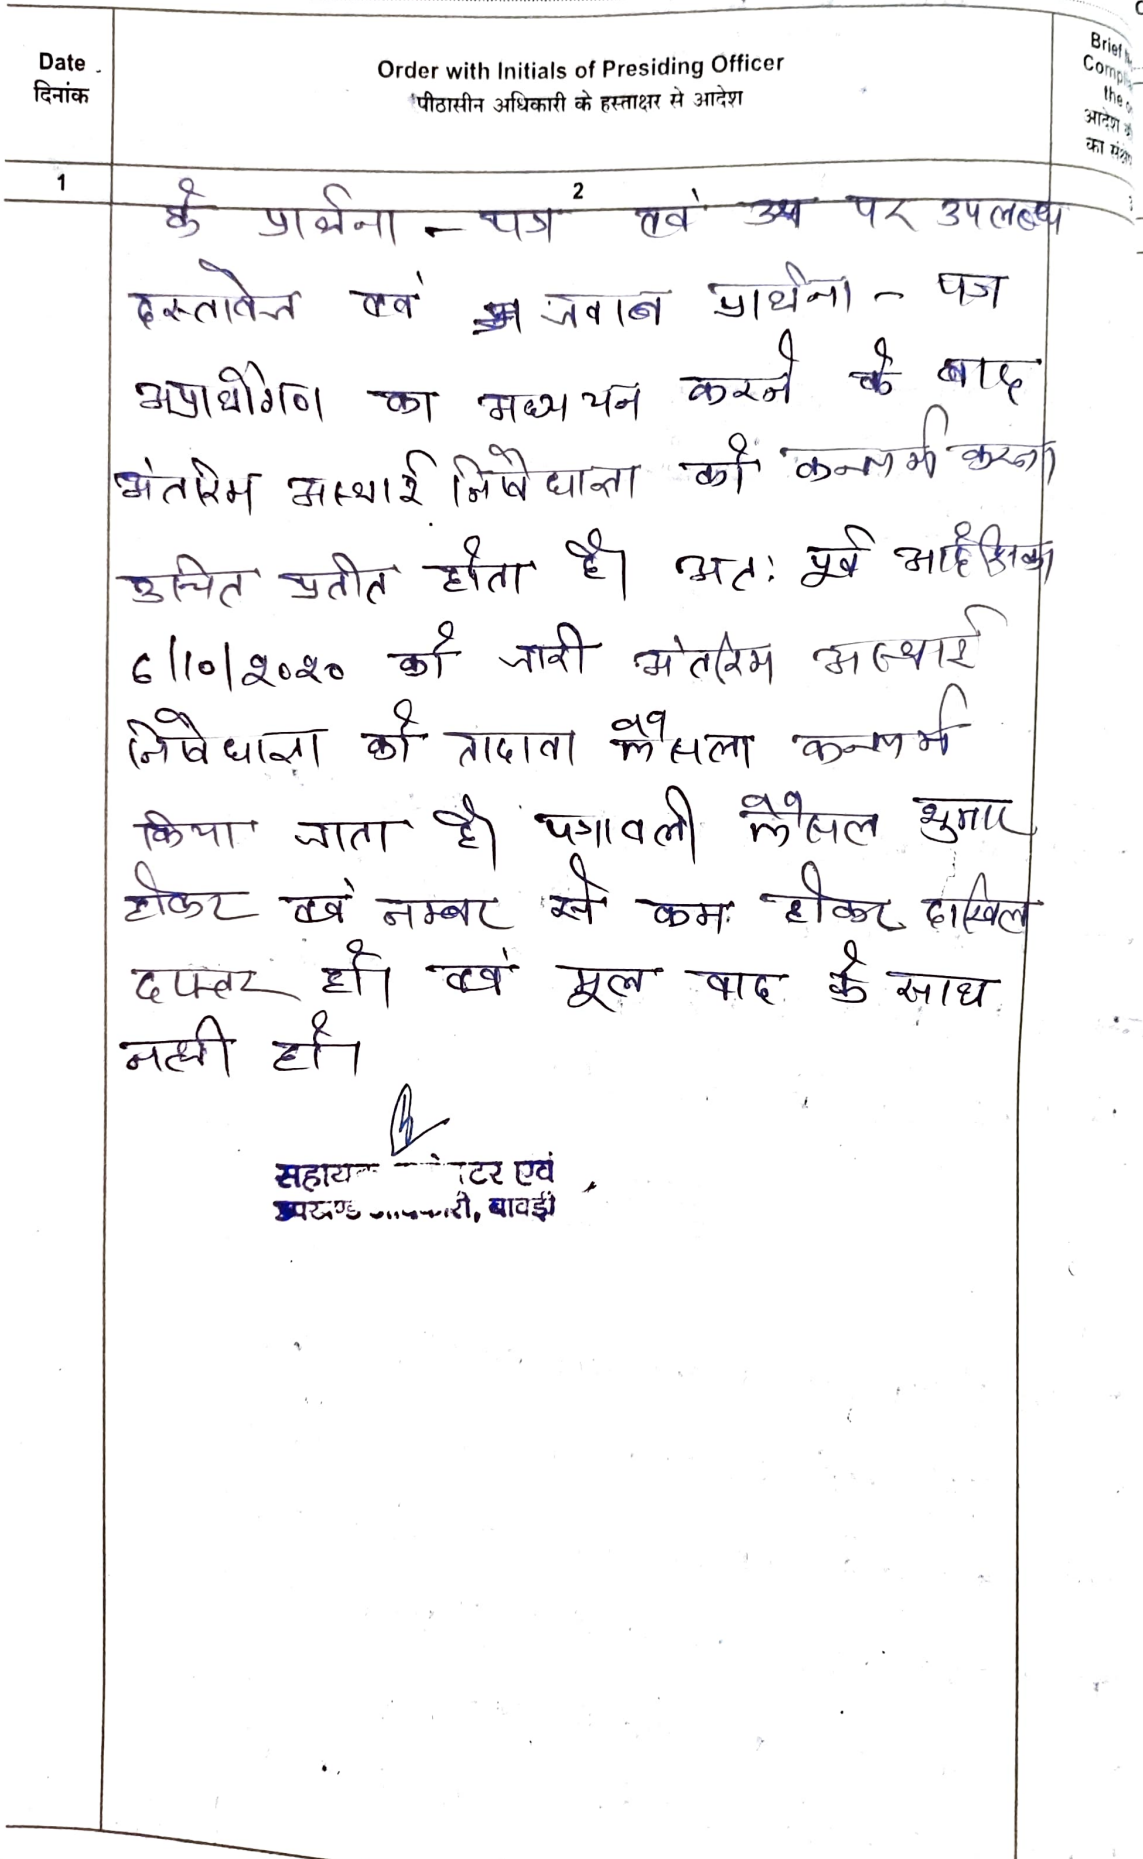 Date
दिनांक
Order with Initials of Presiding Officer
पीठासीन अधिकारी के हस्ताक्षर से आदेश
Brief
the
आदेश
1
2
के प्रार्थना - पत्र एवं उस पर उपलब्ध
दस्तावेज एवं जवाब प्रार्थना - पत्र
अप्रार्थीगण का अध्ययन करने के बाद
अंतरिम अस्थाई निषेधाज्ञा को कन्फर्म करना
उचित प्रतीत होता है। अतः पूर्व
6/10/2020 को जारी अंतरिम अस्थाई
निषेधाज्ञा को तादाता फैसला कन्फर्म
किया जाता है। पत्रावली फैसल शुमार
होकर एवं नम्बर से कम होकर दाखिल
दफ्तर हो। एवं मूल वाद के साथ
नत्थी हो।
एवं
बावड़ी